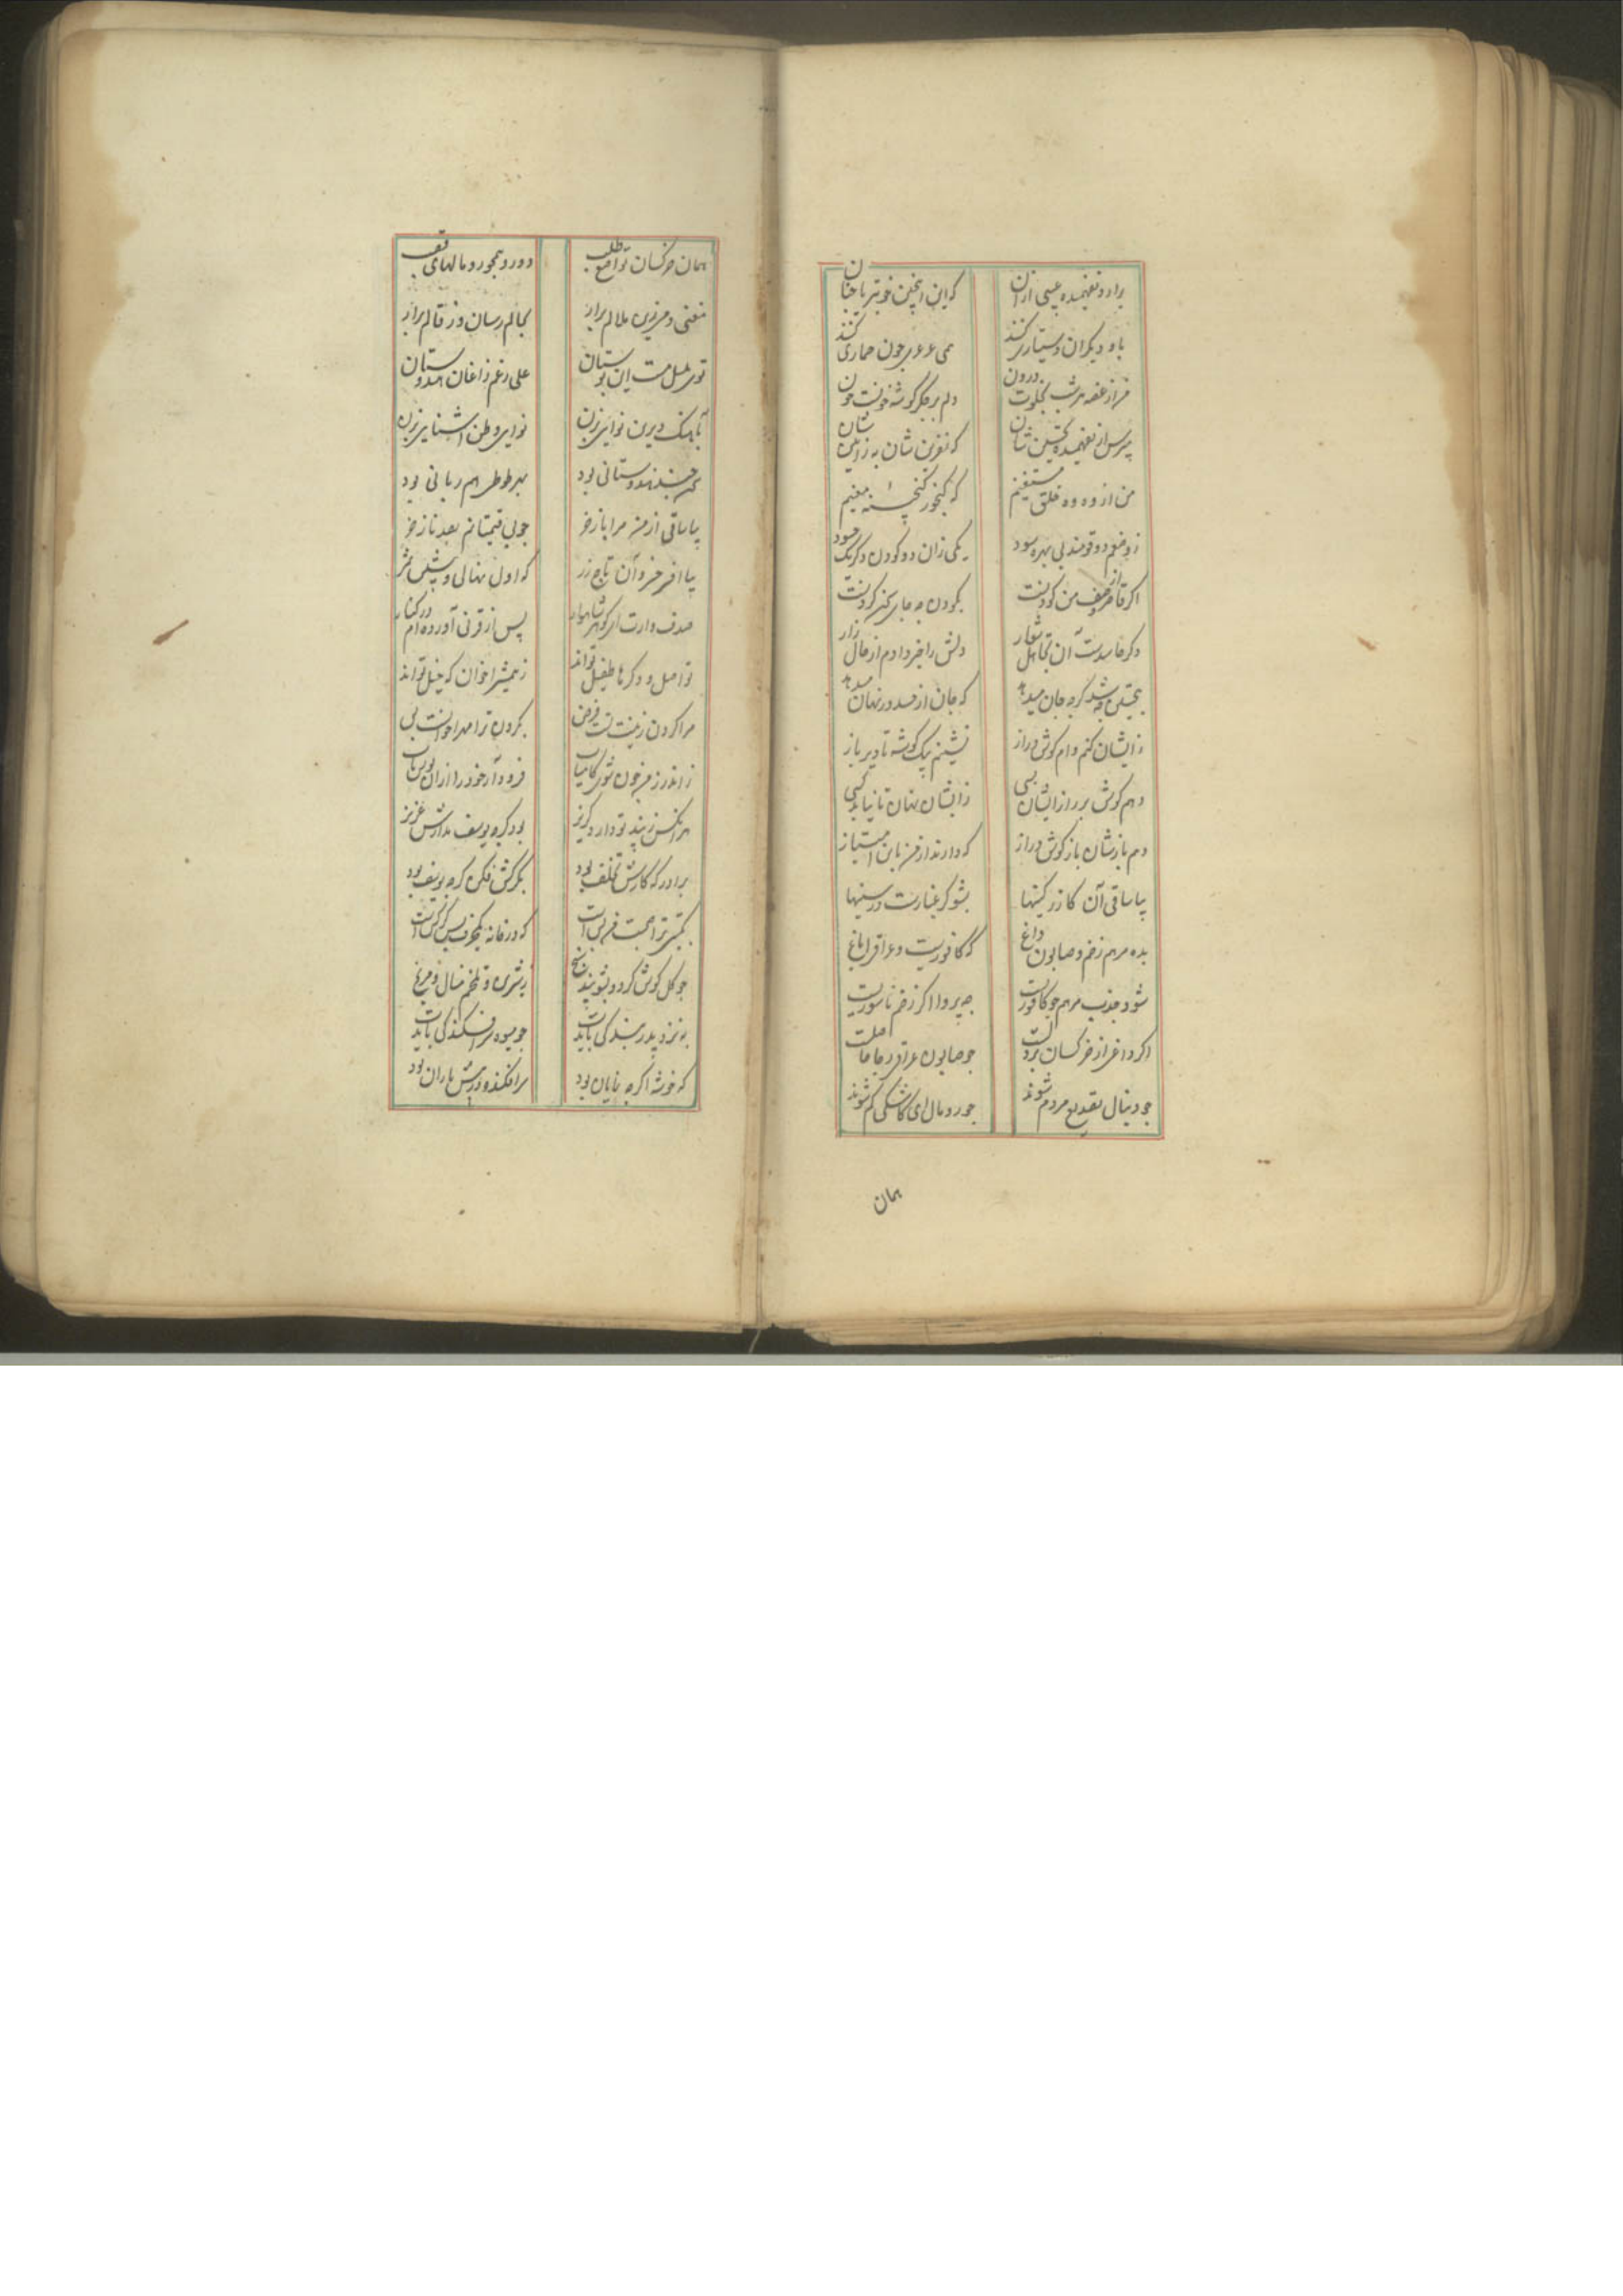 برادر نفهمیده عیبی ازان که این اینچنین خوبتر یا چنان
با و دیگران دستیاری کنند همی عرعر چون حماری کنند
من از غصه هر شب بخلوت درون دلم بر جگر گوشه خونست خون
مپرس از نفهمیده تحسین شان که نفرین شان به ز تحسین شان
من از وه وه خلق مستغنیم که گنجور گنجینه مغنیم
ز وضعم دو قومند بی بهره سود یکی زان دو کودن دگر یک حسود
اگر قاصر از وصف من کودنست بکودن چه جای گنه کردنست
وگر حاسدست آن تجاهل شعار دلش را خبر دادم از حال زار
بتحسین چه شد گرچه جان میدهد که جان از حسد در نهان میدهد
ز ایشان کنم وام گوش دراز نشینم بیک گوشه تا دیر باز
دهم گوش بر راز ایشان بسی ز ایشان نهان تا نیابد کسی
دهم بازشان باز گوش دراز که دارند از من باین امتیاز
بیا ساقی آن گازر کینها بشو گر غبارست در سینها
بده مرهم زخم و صابون داغ که کافوریست و عراقی ایاغ
شود جذب مرهم چو کافوریست چه پروا اگر زخم ناسوریست
اگر داغی از خرکسان بر دلست چو صابون عراقی بجا حاصلست
چو دنبال تصدیع مردم شوند چو رومال ای کاشکی گم شوند
همان
همان خرکسان تواضع طلب دو رو همچو رومالهای قصب
مغنی دمی زین ملالم برار بحالم رسان وز قالم برار
توی بلبل مست این بوستان علی رغم زاغان هندوستان
بآهنگ دیرین نوایی بزن نوای وطن آشنایی بزن
که چند هندوستانی بود بهر طوطی هم زبانی بود
بیا ساقی از من مرا باز خر چو بی قیمتانم بصد ناز خر
بیا افسر خسروان تاج زر که اول نهالی و پیشین ثمر
صدف وارت ای گوهر شاهوار پس از قرنی آورده ام در کنار
تو اصل و دگرها طفیل تواند ز همشیر اخوان که خیل تواند
مرا کردن زینتست فرض بگردن ترا مهر اخوانست
ز اندرز من چون شوی کامیاب فرود آر خود را ازان
هر آنکس ز پند تو دارد گریز بود گرچه یوسف مدارش عزیز
برادر که کارش تخلف بود بگرگش فکن گرچه یوسف بود
بگیتی ترا حجت من بس است که در خانه یکحرف بس گر کس است
چو گل گوش کرد و بشو پند سنج بشیرین و تلخم منال و مرنج
به نزد پدر بندگی بایدت چو میوه سرافکندگی بایدت
که خوشه اگرچه نمایان بود سرافکنده در پیش یاران بود